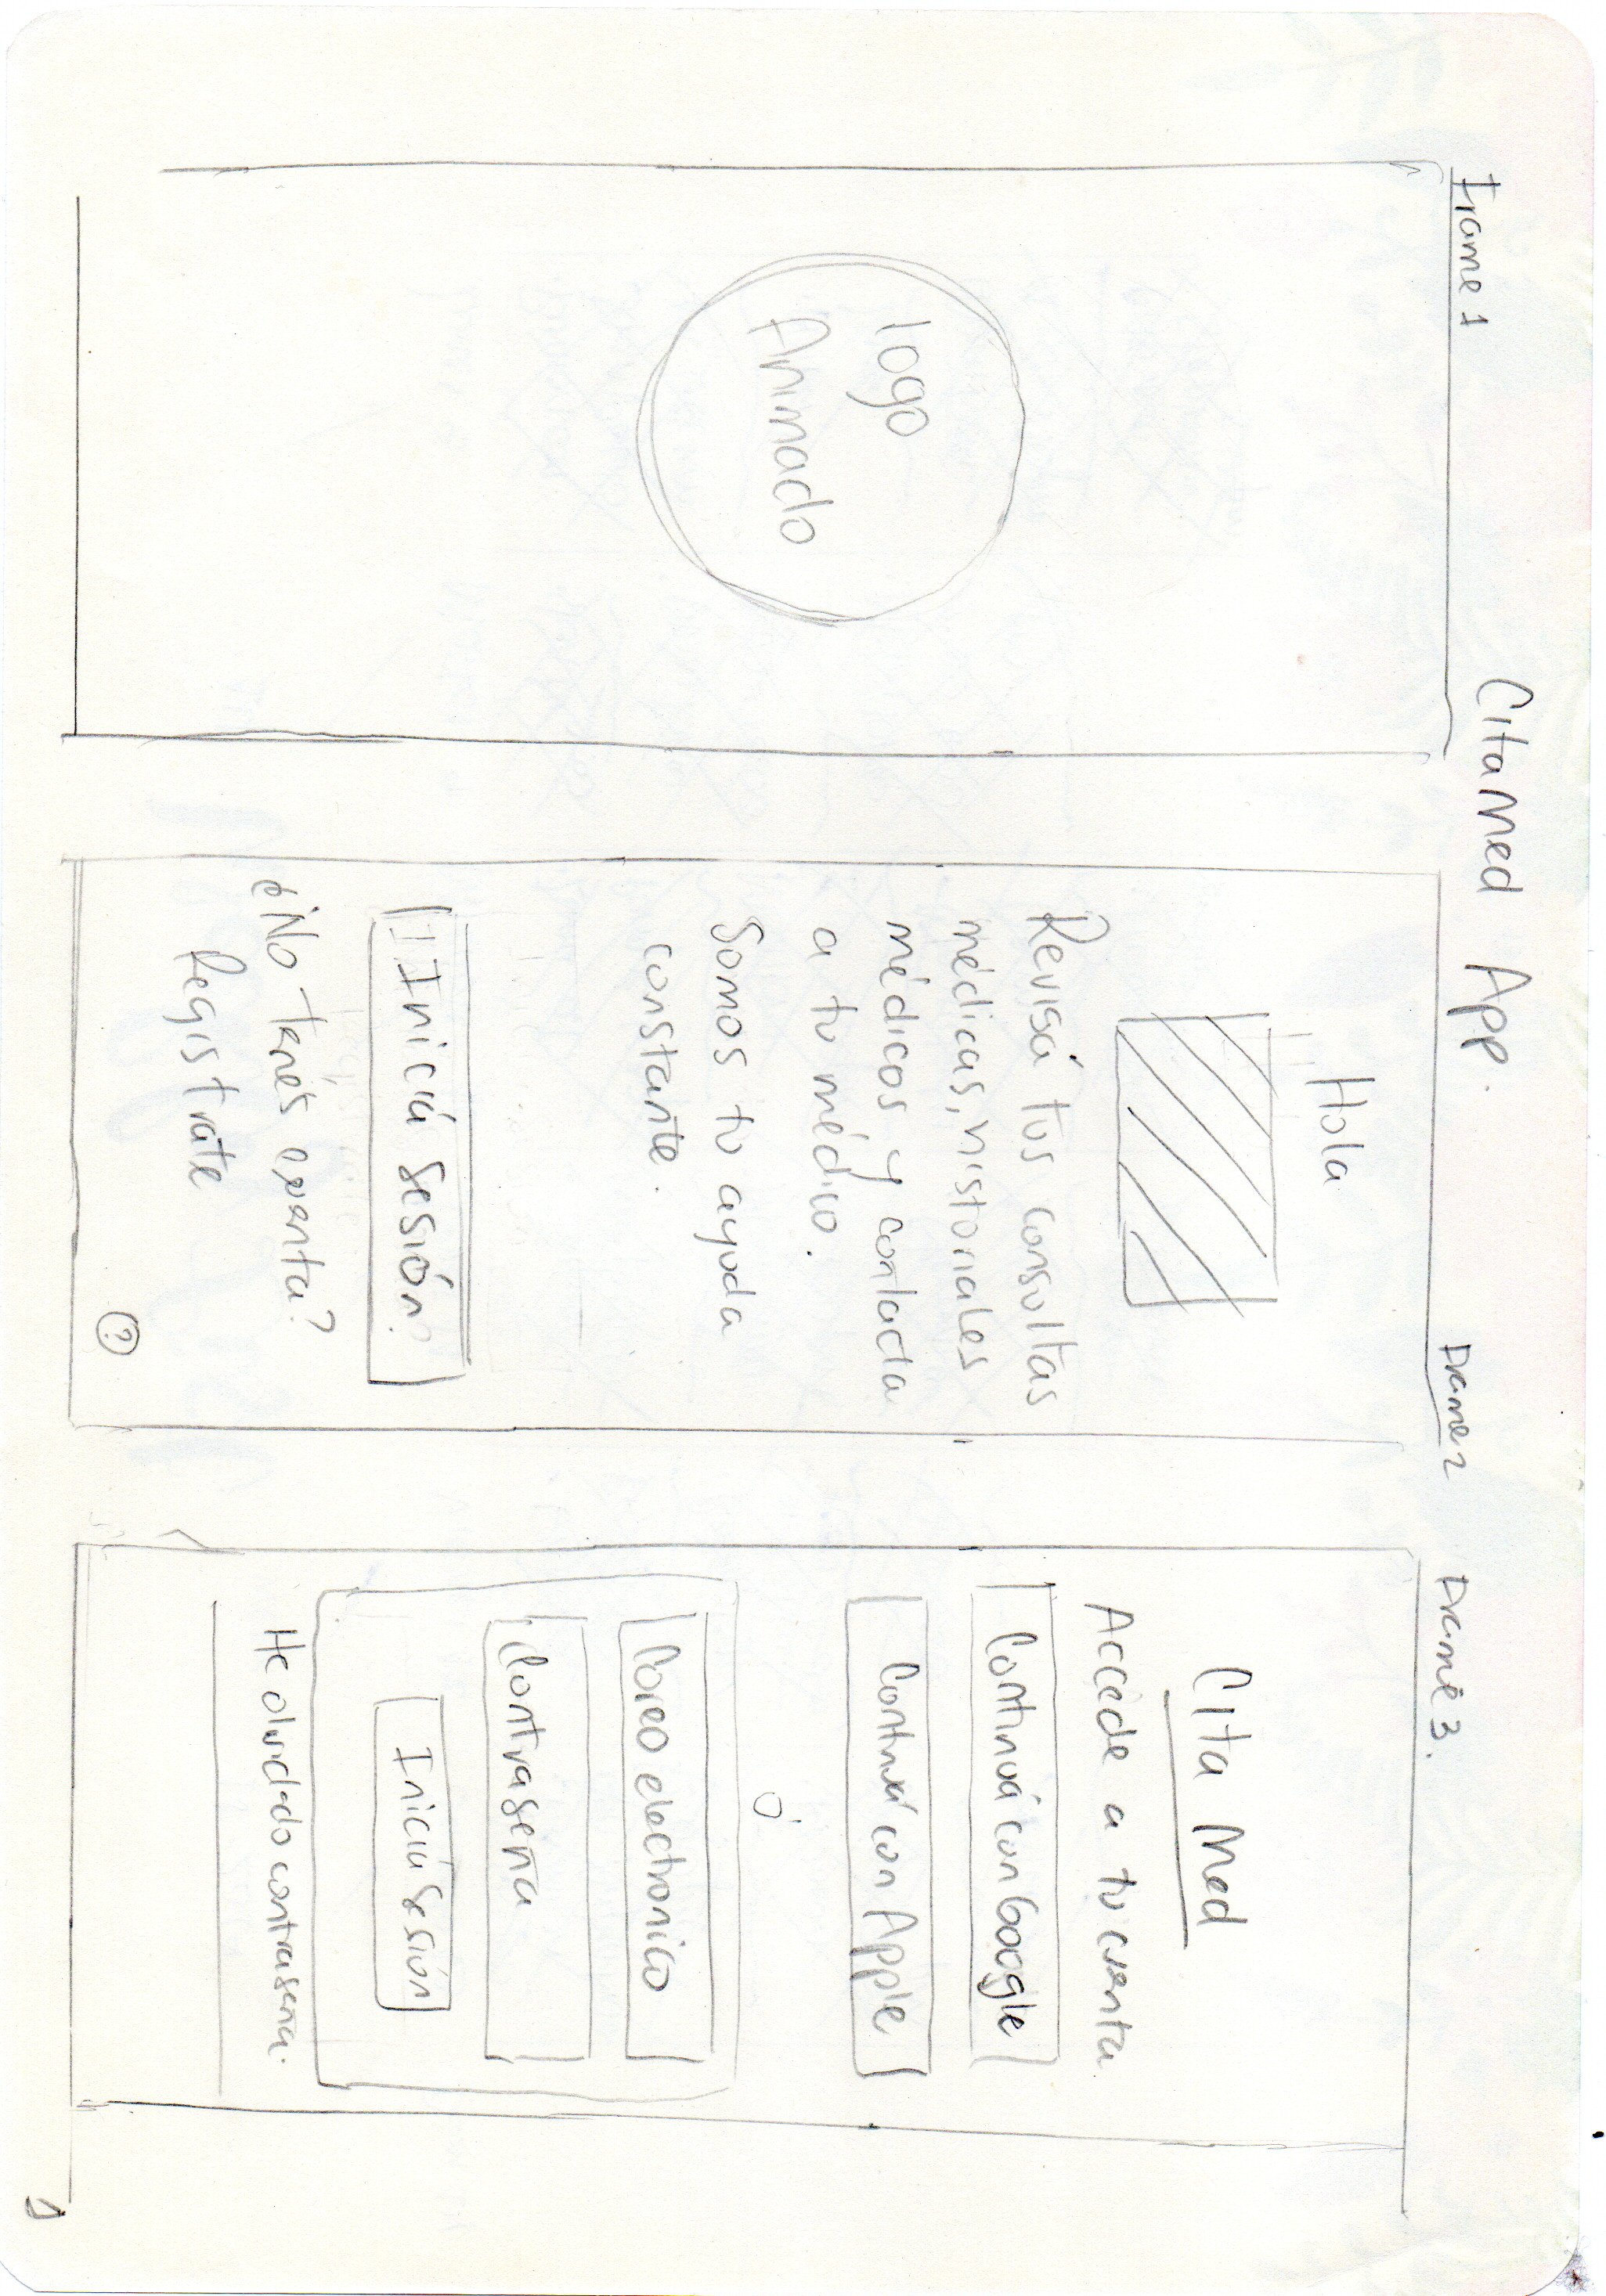 CitaMed App.
Frame 1
logo
Animado
Frame 2
Hola
Revisá tus consultas
médicas, historiales
médicos y contacta
a tu médico.
Somos tu ayuda
constante.
Iniciá Sesión
¿No tenés cuenta?
Registrate
?
Frame 3.
Cita Med
Accede a tu cuenta
Continuá con Google
Continuá con Apple
ó
Coreo electronico
Contraseña
Iniciá Sesión
He olvidado contraseña.
1